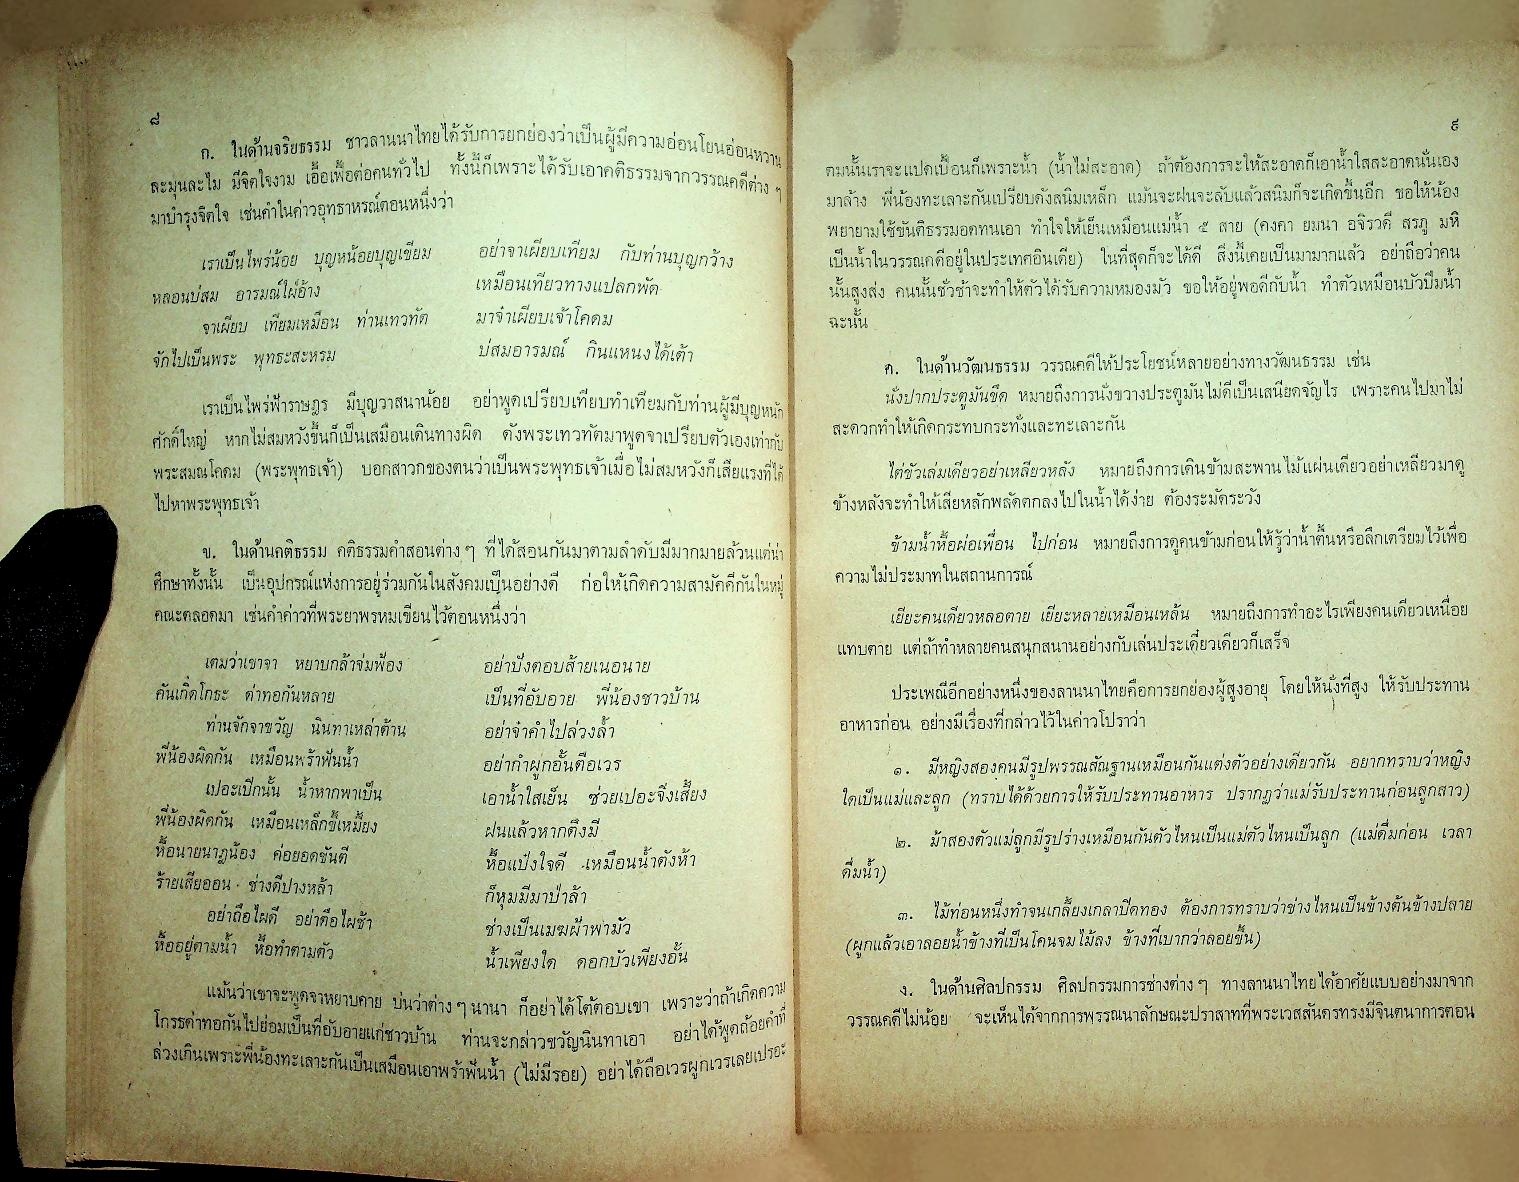 ๘
ก. ในด้านจริยธรรม ชาวลานนาไทยได้รับการยกย่องว่าเป็นผู้มีความอ่อนโยนอ่อนหวาน
ละมุนละไม มีจิตใจงาม เอื้อเฟื้อต่อคนทั่วไป ทั้งนี้ก็เพราะได้รับเอาคติธรรมจากวรรณคดีต่าง ๆ
มาบำรุงจิตใจ เช่นคำในค่าวอุทาหรณ์ตอนหนึ่งว่า
เราเป็นไพร่น้อย บุญหน้อยบุญเขียม อย่าจาเผียบเทียม กับท่านบุญกว้าง
หลอนบ่สม อารมณ์ใผ่อ้าง เหมือนเทียวทางแปลกพัด
จาเผียบ เทียมเหมือน ท่านเทวทัต มาจ๋าเผียบเจ้าโคดม
จักไปเป็นพระ พุทธะสะหรม บ่สมอารมณ์ กินแหนงได้เต้า
เราเป็นไพร่ฟ้าราษฎร มีบุญวาสนาน้อย อย่าพูดเปรียบเทียบทำเทียมกับท่านผู้มีบุญหนัก
ศักดิ์ใหญ่ หากไม่สมหวังขึ้นก็เป็นเสมือนเดินทางผิด ดังพระเทวทัตมาพูดจาเปรียบตัวเองเท่ากับ
พระสมณโคดม (พระพุทธเจ้า) บอกสาวกของตนว่าเป็นพระพุทธเจ้าเมื่อไม่สมหวังก็เสียแรงที่ได้
ไปหาพระพุทธเจ้า
ข. ในด้านคติธรรม คติธรรมคำสอนต่าง ๆ ที่ได้สอนกันมาตามลำดับมีมากมายล้วนแต่น่า
ศึกษาทั้งนั้น เป็นอุปกรณ์แห่งการอยู่ร่วมกันในสังคมเป็นอย่างดี ก่อให้เกิดความสามัคคีกันในหมู่
คณะตลอดมา เช่นคำค่าวที่พระยาพรหมเขียนไว้ตอนหนึ่งว่า
เตมว่าเขาจา หยาบกล้าจ่มฟ้อง อย่าปังตอบส้ายเนอนาย
คันเกิ๊ดโกธะ ด่าทอกันหลาย เป็นที่อับอาย พี่น้องชาวบ้าน
ท่านจักจาขวัญ นินทาเหล่าต้าน อย่าจ๋าคำไปล่วงล้ำ
พี่น้องผิดกัน เหมือนพร้าฟันน้ำ อย่ากำผูกอั้นตือเวร
เปอะเปิกนั้น น้ำหากพาเป็น เอาน้ำใสเย็น ซ่วยเปอะจึงเสี้ยง
พี่น้องผิดกัน เหมือนเหล็กขี้เหมี้ยง ฝนแล้วหากตึงมี
หื้อนายนาฎน้อง ค่อยอดขันตี หื้อแป๋งใจดี เหมือนน้ำตังห้า
ร้ายเสียออน ช่างดีปางหล้า ก็หุมมีมาป่าล้า
อย่าถือไผดี อย่าตือไผช้า ช่างเป็นเมฆฝ้าพามัว
หื้ออยู่ตามน้ำ หื้อทำตามตัว น้ำเพียงใด ดอกบัวเพียงอั้น
แม้นว่าเขาจะพูดจาหยาบคาย บ่นว่าต่าง ๆ นานา ก็อย่าได้โต้ตอบเขา เพราะว่าถ้าเกิดความ
โกรธด่าทอกันไปย่อมเป็นที่อับอายแก่ชาวบ้าน ท่านจะกล่าวขวัญนินทาเอา อย่าได้พูดถ้อยคำที่
ล่วงเกินเพราะพี่น้องทะเลาะกันเป็นเสมือนเอาพร้าฟันน้ำ (ไม่มีรอย) อย่าได้ถือเวรผูกเวรเลยเปรอะ
๙
ตมนั้นเราจะแปดเปื้อนก็เพราะน้ำ (น้ำไม่สะอาด) ถ้าต้องการจะให้สะอาดก็เอาน้ำใสสะอาดนั่นเอง
มาล้าง พี่น้องทะเลาะกันเปรียบดังสนิมเหล็ก แม้นจะฝนจะลับแล้วสนิมก็จะเกิดขึ้นอีก ขอให้น้อง
พยายามใช้ขันติธรรมอดทนเอา ทำใจให้เย็นเหมือนแม่น้ำ ๕ สาย (คงคา ยมนา อจิรวดี สรภู มหิ
เป็นน้ำในวรรณคดีอยู่ในประเทศอินเดีย) ในที่สุดก็จะได้ดี สิ่งนี้เคยเป็นมามากแล้ว อย่าถือว่าคน
นั้นสูงส่ง คนนั้นชั่วช้าจะทำให้ตัวได้รับความหมองมัว ขอให้อยู่พอดีกับน้ำ ทำตัวเหมือนบัวปิมน้ำ
ฉะนั้น
ค. ในด้านวัฒนธรรม วรรณคดีให้ประโยชน์หลายอย่างทางวัฒนธรรม เช่น
นั่งปากประตูมันขึด หมายถึงการนั่งขวางประตูมันไม่ดีเป็นเสนียดจัญไร เพราะคนไปมาไม่
สะดวกทำให้เกิดกระทบกระทั่งและทะเลาะกัน
ไต่ขัวเล่มเดียวอย่าเหลียวหลัง หมายถึงการเดินข้ามสะพานไม้แผ่นเดียวอย่าเหลียวมาดู
ข้างหลังจะทำให้เสียหลักพลัดตกลงไปในน้ำได้ง่าย ต้องระมัดระวัง
ข้ามน้ำหื้อผ่อเพื่อน ไปก่อน หมายถึงการดูคนข้ามก่อนให้รู้ว่าน้ำตื้นหรือลึกเตรียมไว้เพื่อ
ความไม่ประมาทในสถานการณ์
เยียะคนเดียวหลอตาย เยียะหลายเหมือนเหล้น หมายถึงการทำอะไรเพียงคนเดียวเหนื่อย
แทบตาย แต่ถ้าทำหลายคนสนุกสนานอย่างกับเล่นประเดี๋ยวเดียวก็เสร็จ
ประเพณีอีกอย่างหนึ่งของลานนาไทยคือการยกย่องผู้สูงอายุ โดยให้นั่งที่สูง ให้รับประทาน
อาหารก่อน อย่างมีเรื่องที่กล่าวไว้ในค่าวโปราว่า
๑. มีหญิงสองคนมีรูปพรรณสัณฐานเหมือนกันแต่งตัวอย่างเดียวกัน อยากทราบว่าหญิง
ใดเป็นแม่และลูก (ทราบได้ด้วยการให้รับประทานอาหาร ปรากฏว่าแม่รับประทานก่อนลูกสาว)
๒. ม้าสองตัวแม่ลูกมีรูปร่างเหมือนกันตัวไหนเป็นแม่ตัวไหนเป็นลูก (แม่ดื่มก่อน เวลา
ดื่มน้ำ)
๓. ไม้ท่อนหนึ่งทำจนเกลี้ยงเกลาปิดทอง ต้องการทราบว่าข้างไหนเป็นข้างต้นข้างปลาย
(ผูกแล้วเอาลอยน้ำข้างที่เป็นโคนจมไม้ลง ข้างที่เบากว่าลอยขึ้น)
ง. ในด้านศิลปกรรม ศิลปกรรมการช่างต่าง ๆ ทางลานนาไทยได้อาศัยแบบอย่างมาจาก
วรรณคดีไม่น้อย จะเห็นได้จากการพรรณนาลักษณะปราสาทที่พระเวสสันดรทรงมีจินตนาการตอน